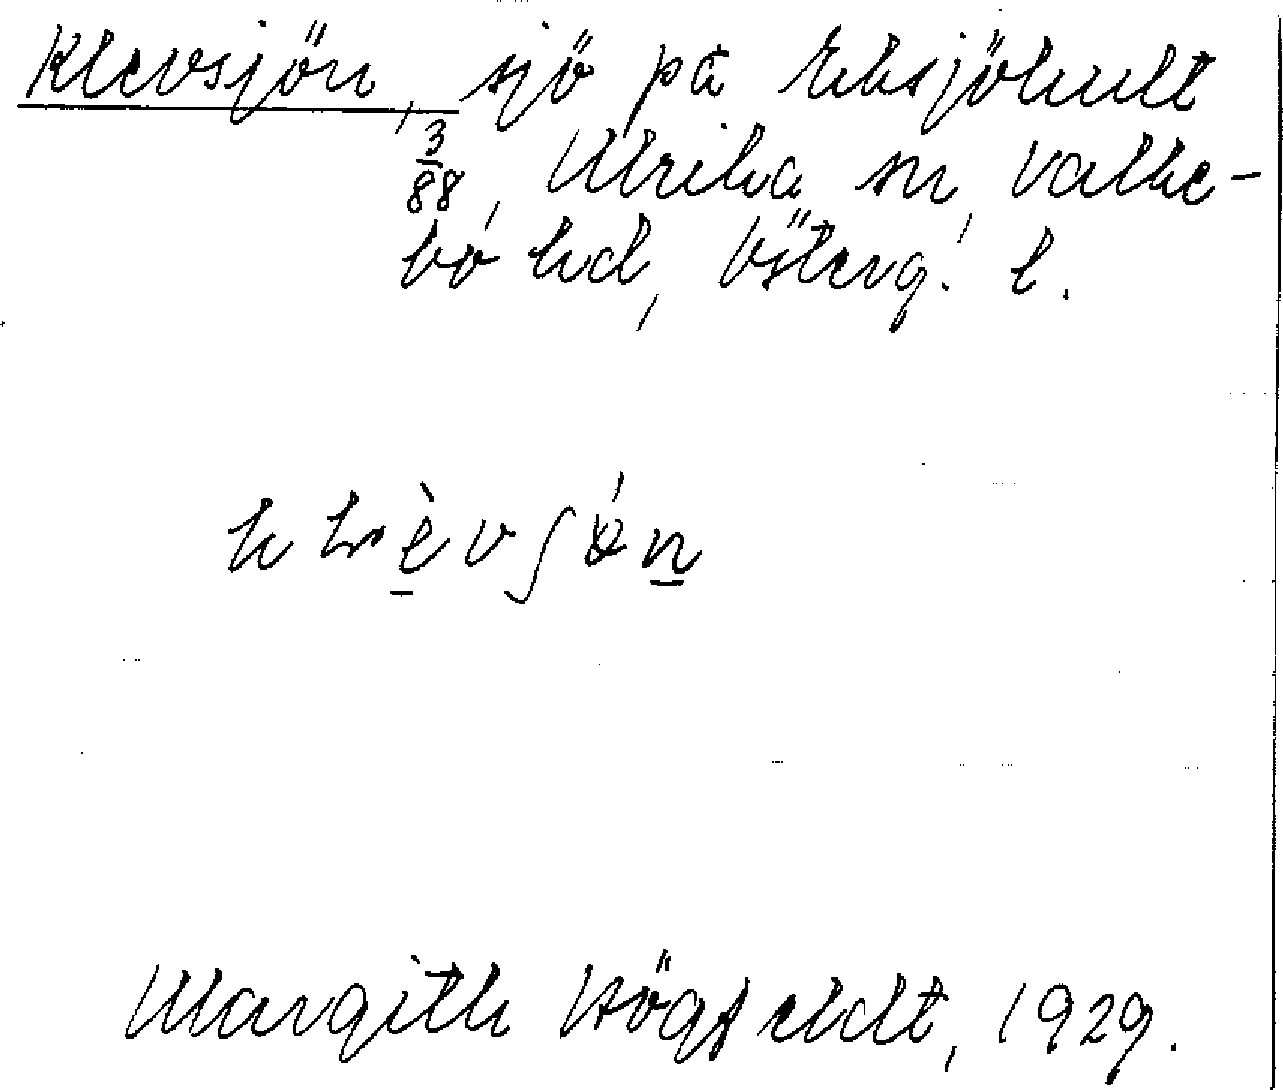 Klevsjön, sjö på Eksjöhult
3/88, Ulrika sn, Valke-
bo hd, Österg. l.
Margith Högfeldt, 1929.